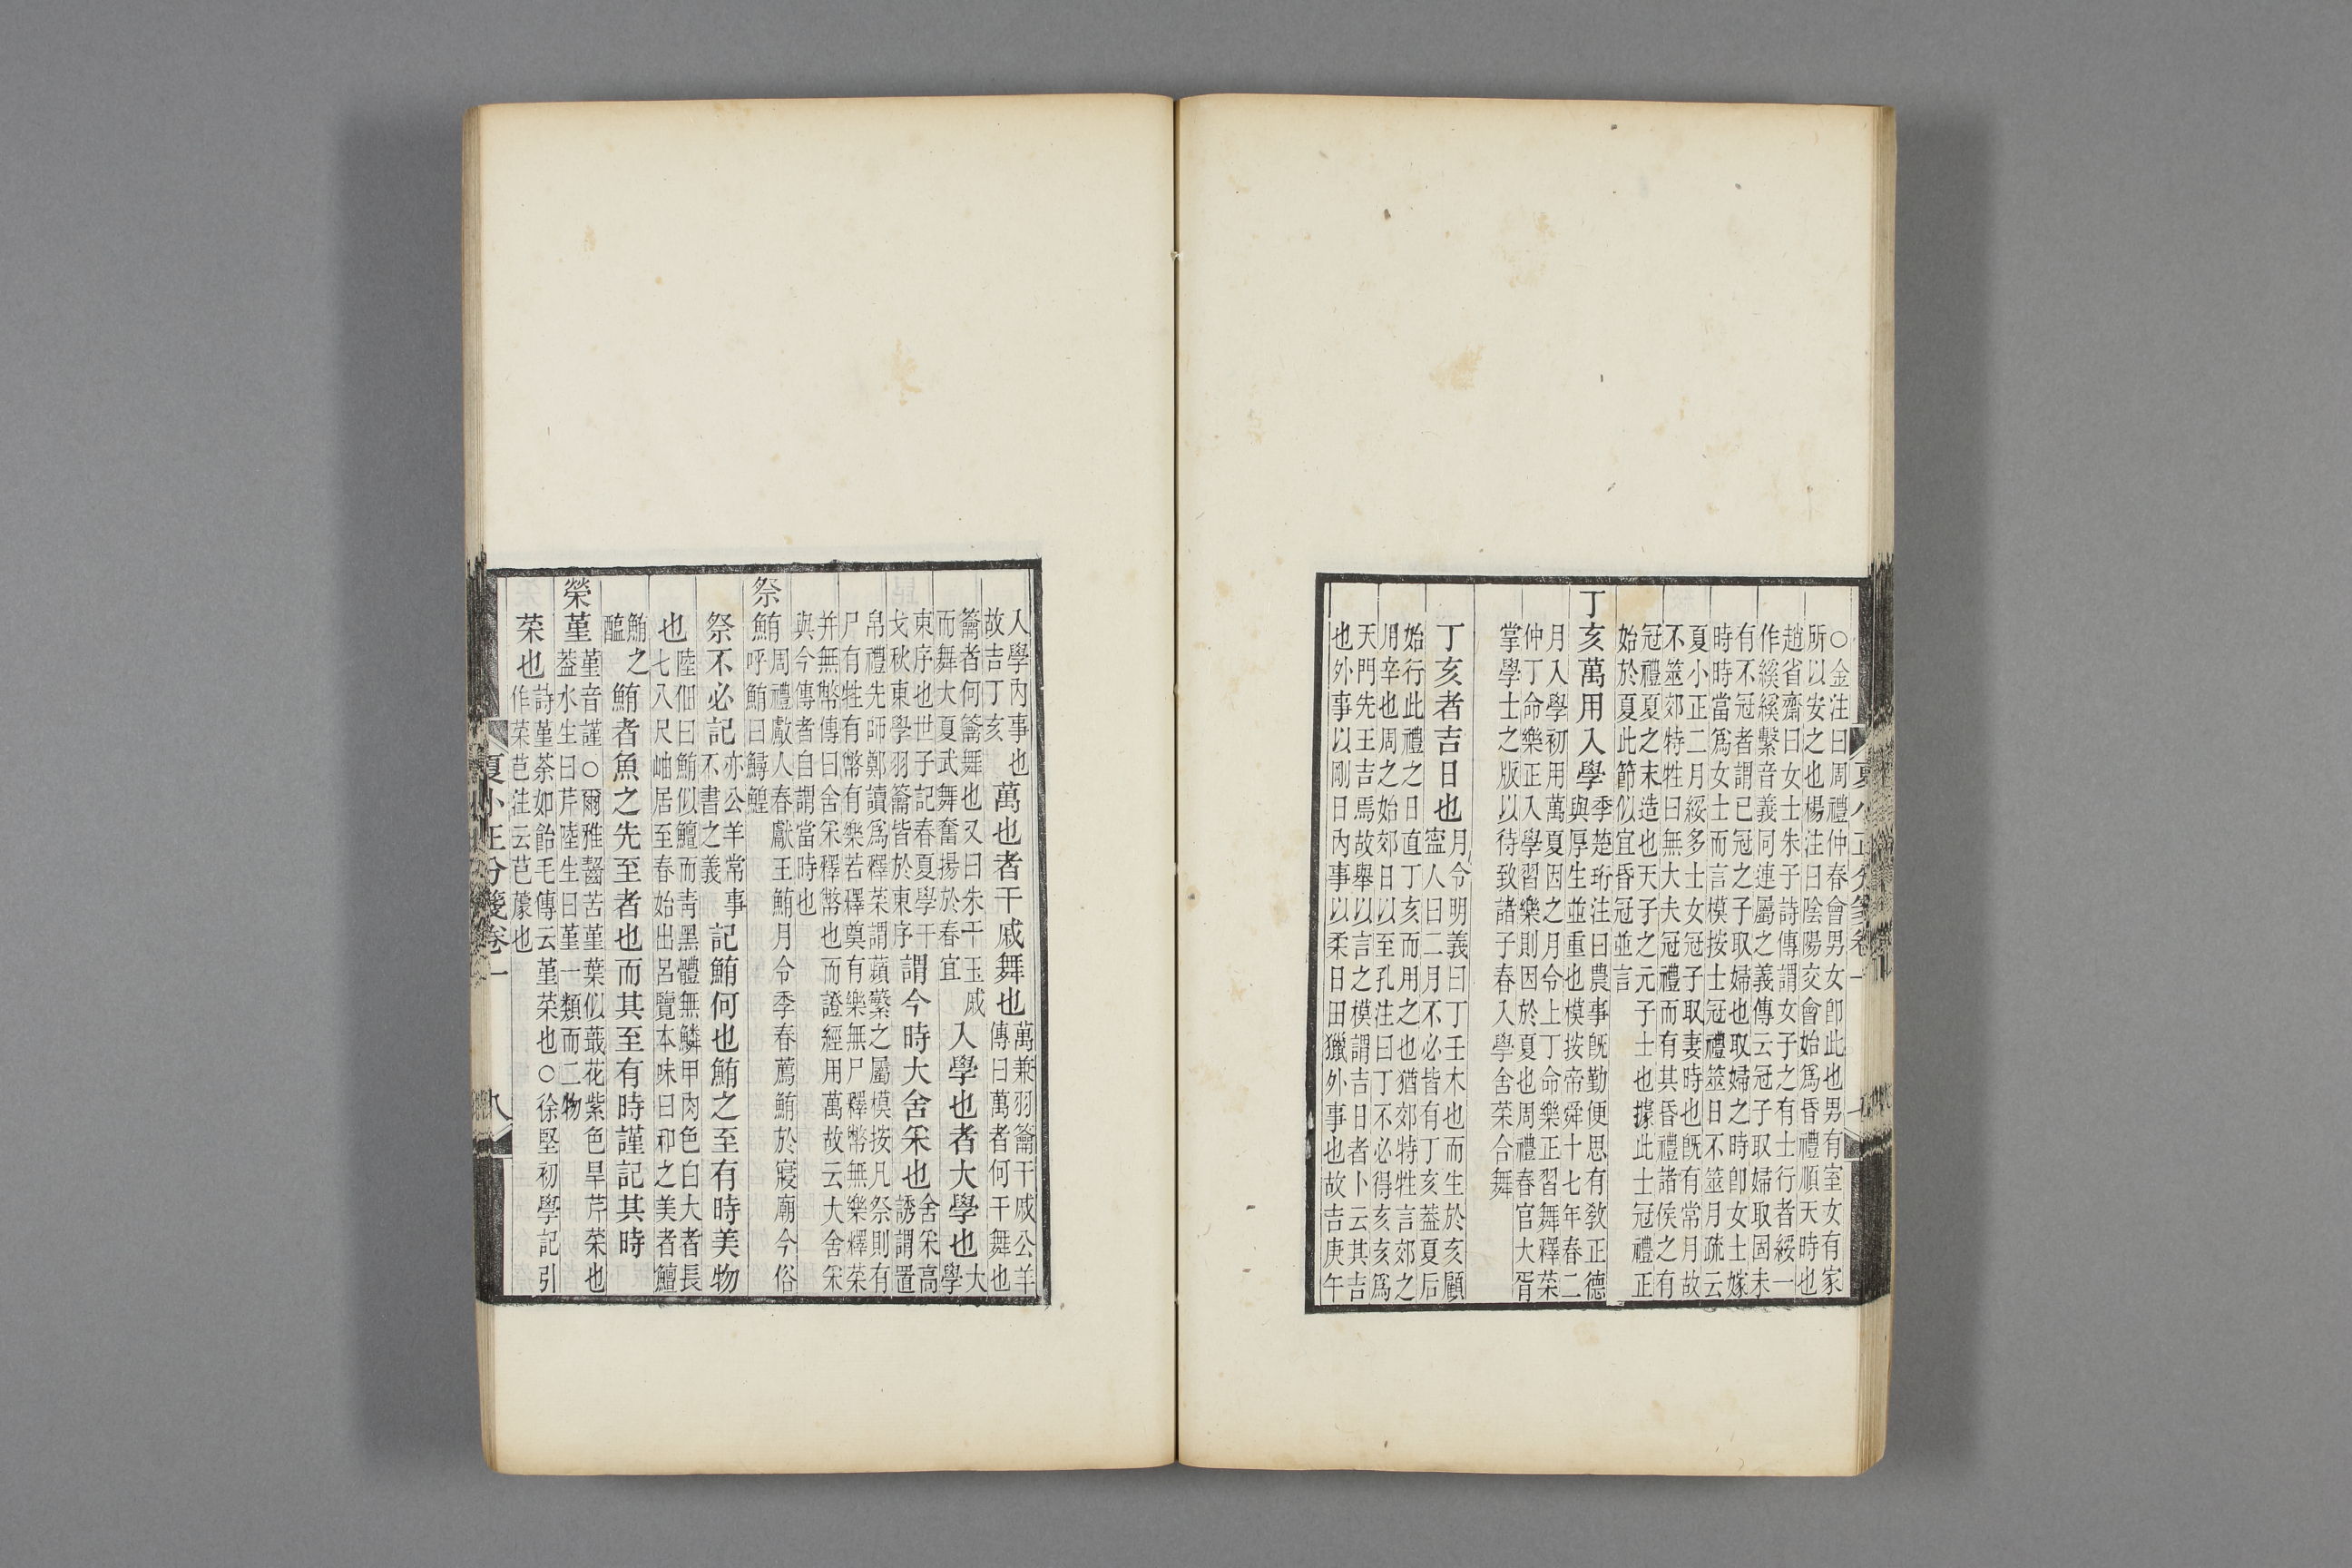 ○金注曰周禮仲春會男女卽此也男有室女有家
所以安之也楊注曰陰陽交會始爲昏禮順天時也
趙省齋曰女士朱子詩傳謂女子之有士行者綏一
作緩緩繫音義同連屬之義傳云冠子取婦取固未
有不冠者謂已冠之子取婦也取婦之時卽女士嫁
時時當爲女士而言模按士冠禮筮日不筮月疏云
夏小正二月綏多士女冠子取妻時也旣有常月故
不筮郊特牲曰無大夫冠禮而有其昏禮諸侯之有
冠禮夏之末造也天子之元子士也據此士冠禮正
始於夏此節似宜昏冠並言
丁亥萬用入學
季楚珩注曰農事旣勤便思有敎正德
與厚生並重也模按帝舜十七年春二
月入學初用萬夏因之月令上丁命樂正習舞釋菜
仲丁命樂正入學習樂則因於夏也周禮春官大胥
掌學士之版以待致諸子春入學舍菜合舞
丁亥者吉日也
月令明義曰丁壬木也而生於亥顧
寍人曰二月不必皆有丁亥葢夏后
始行此禮之日直丁亥而用之也猶郊特牲言郊之
用辛也周之始郊日以至孔注曰丁不必得亥亥爲
天門先王吉焉故舉以言之模謂吉日者卜云其吉
也外事以剛日內事以柔日田獵外事也故吉庚午
入學內事也
故吉丁亥
萬也者干戚舞也
萬兼羽籥干戚公羊
傳曰萬者何干舞也
籥者何籥舞也又曰朱干玉戚
而舞大夏武舞奮揚於春宜
入學也者大學也
大
學
東序也世子記春夏學干
戈秋東學羽籥皆於東序
謂今時大舍采也
舍采高
誘謂置
帛禮先師鄭讀爲釋菜謂蘋蘩之屬模按凡祭則有
尸有牲有幣有樂若釋奠有樂無尸釋幣無樂釋菜
并無幣傳曰舍采釋幣也而證經用萬故云大舍采
與今傳者自謂當時也
祭鮪
周禮䱷人春獻王鮪月令季春薦鮪於寢廟今俗
呼鮪曰鱘鰉
祭不必記
亦公羊常事
不書之義
記鮪何也鮪之至有時美物
也
陸佃曰鮪似鱣而靑黑體無鱗甲肉色白大者長
七八尺岫居至春始出呂覽本味曰和之美者鱣
鮪之
醢
鮪者魚之先至者也而其至有時謹記其時
榮菫
菫音謹○爾雅齧苦菫葉似蕺花紫色旱芹榮也
葢水生曰芹陸生曰菫一類而二物
菜也
詩菫荼如飴毛傳云菫菜也○徐堅初學記引
作菜芑注云芑蔉也
夏小正分箋卷一
八